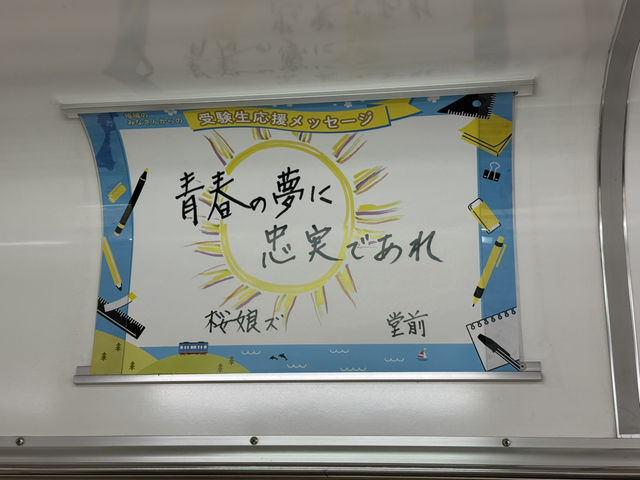 みなさんからの
受験生応援メッセージ
青春の夢に
忠実であれ
桜娘ズ
堂前